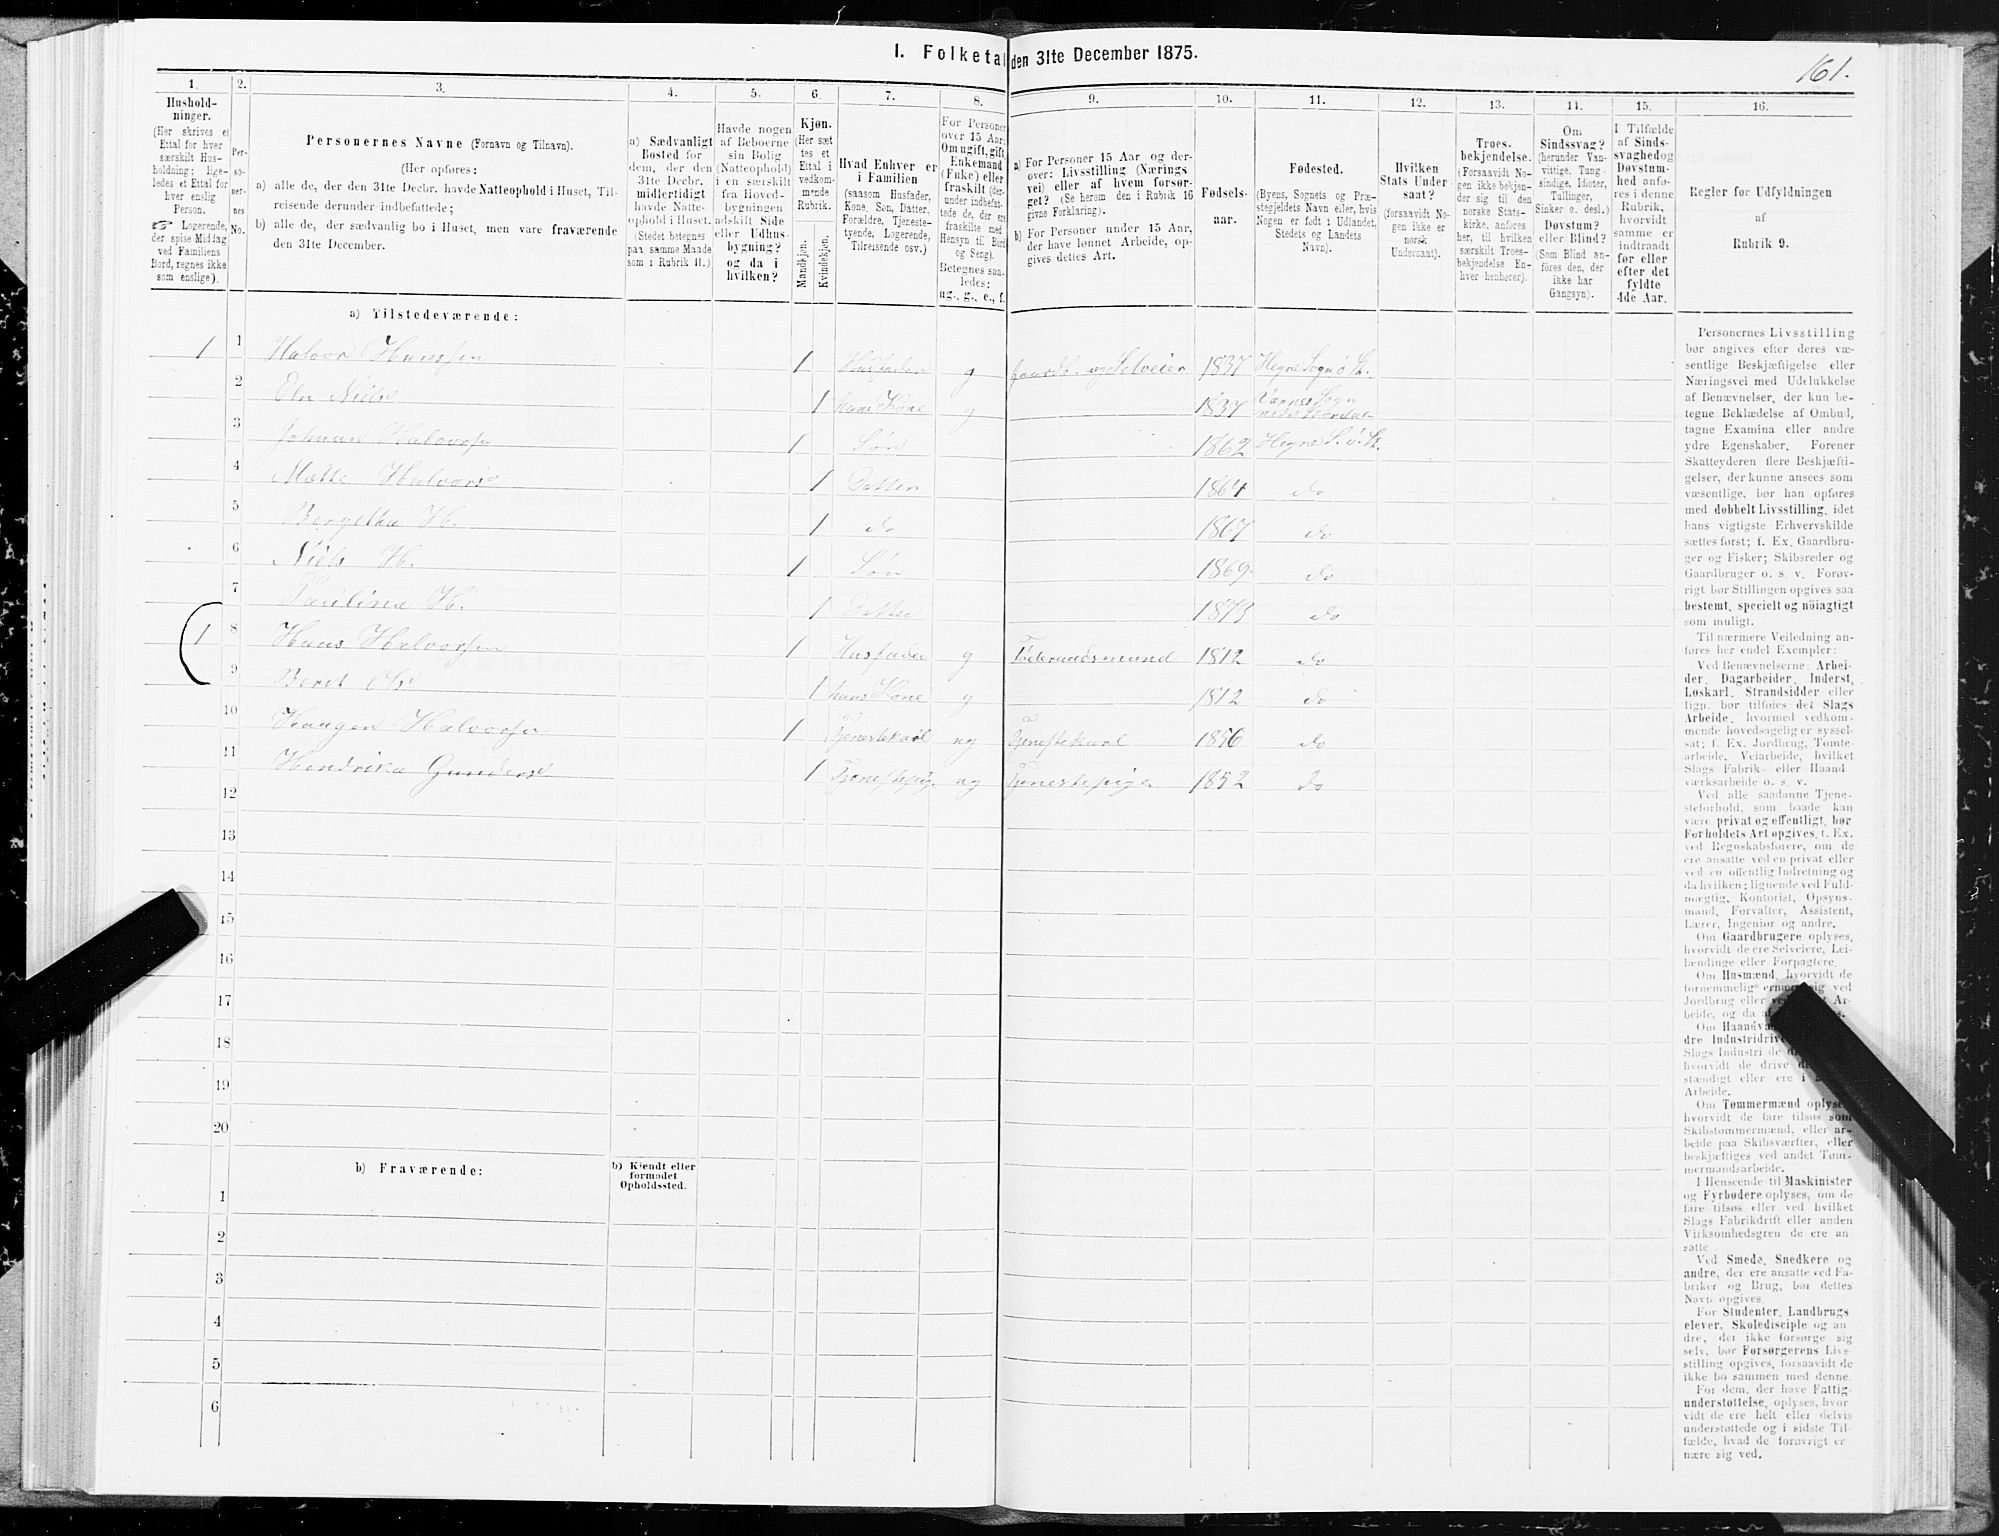 I. Folketal den 31te December 1875.
161.
1.
Hushold-
ninger.
(Her skrives et
Ettal for hver
særskilt Hus-
holdning; lige-
ledes et Ettal for
hver enslig
Person.
☞ Logerende,
der spise Middag
ved Familiens
Bord, regnes ikke
som enslige).
2.
Per-
so-
ner-
nes
No.
3.
Personernes Navne (Fornavn og Tilnavn).
(Her opføres:
a) alle de, der den 31te Decbr. havde Natteophold i Huset, Til-
reisende derunder indbefattede;
b) alle de, der sædvanlig bo i Huset, men vare fraværende
den 31te December.
4.
a) Sædvanligt
Bosted for
dem, der den
31te Decbr.
midlertidigt
havde Natte-
ophold i Huset.
(Stedet betegnes
paa samme Maade
som i Rubrik 11.)
5.
Havde nogen
af Beboerne
sin Bolig
(Natteophold)
i en særskilt
fra Hoved-
bygningen
adskilt Side
eller Udhus-
bygning?
og da i
hvilken?
6.
Kjøn.
(Her sæt
tes et
Ettal i
vedkom-
mende
Rubrik.
Mandkjøn.
Kvindekjøn.
7.
Hvad Enhver er
i Familien
(saasom Husfader,
Kone, Søn, Datter,
Forældre, Tjeneste-
tyende, Logerende,
Tilreisende osv.)
8.
For Personer
over 15 Aar:
Om ugift, gift,
Enkemand
(Enke) eller
fraskilt (der-
under indbefat-
tede de, der ere
fraskilte med
Hensyn til Bord
og Seng).
Betegnes saa-
ledes:
ug., g., e., f.
9.
a) For Personer 15 Aar og der-
over: Livsstilling (Nærings
vei) eller af hvem forsør-
get? (Se herom den i Rubrik 16
givne Forklaring).
b) For Personer under 15 Aar,
der have lønnet Arbeide, op-
gives dettes Art.
10.
Fødsels-
aar.
11.
Fødested.
(Byens, Sognets og Præ-
stegjeldets Navn eller, hvis
Nogen er født i Udlandet,
Stedets og Landets
Navn).
12.
Hvilken
Stats Under-
saat?
(forsaavidt No-
gen ikke er
norsk
Undersaat).
13.
Troes-
bekjendelse.
(Forsaavidt No-
gen ikke bekjen-
der sig til den
norske Stats-
kirke, anføres
her, til hvilken
særskilt Troes-
bekjendelse En-
hver henhører).
14.
Om
Sindssvag?
(herunder Van-
vittige, Tung-
sindige, Idioter,
Tullinger,
Sinker o. desl.)
Døvstum?
eller Blind?
(Som Blind an-
föres den, der
ikke har
Gangsyn).
15.
I Tilfælde
af Sinds-
svaghed og
Døvstum-
hed anfø-
res i denne
Rubrik,
hvorvidt
samme er
indtraadt
før eller
efter det
fyldte
4de Aar.
16.
Regler for Udfyldningen
af
Rubrik 9.
a) Tilstedeværende:
1 1 Halvor Hanssen 1 Husfader g Gaardb. og Selveier 1837 Hegne Sogn ö. St.
2 Eln Nielsd 1 hans Kone g 1837 Værnes Sogn
nedre Stördalen
3 Johnan Halvors. 1 Søn 1862 Hegne S. ö. St.
4 Mette Halvorsd 1 Datter 1864 do
5 Bergitha H. 1 do 1867 do
6 Niels H. 1 Søn 1869 do
7 Paulina H. 1 Datter 1873 do
1 8 Hans Halvorsen 1 Husfader g Föderaadsmand 1812 do
9 Beret Olsd 1 hans Kone g 1812 do
10 Haagen Halvorsen 1 Tjenestekarl ug Tjenestekarl 1856 do
11 Hendrika Gundersd 1 Tjenestepige ug Tjenestepige 1852 do
12
13
14
15
16
17
18
19
20
b) Fraværende:
b) Kjendt eller
formodet
Opholdssted.
1
2
3
4
5
6
Personernes Livsstilling
bør angives efter deres væ-
sentlige Beskjæftigelse eller
Næringsvei med Udelukkelse
af Benævnelser, der kun be-
tegne Beklædelse af Ombud,
tagne Examina eller andre
ydre Egenskaber. Forener
Skatteyderen flere Beskjæfti-
gelser, der kunne ansees som
væsentlige, bør han opføres
med dobbelt Livsstilling, idet
hans vigtigste Erhvervskilde
sættes først; f. Ex. Gaardbru-
ger og Fisker; Skibsreder og
Gaardbruger o. s. v. Forøv-
rigt bør Stillingen opgives saa
bestemt, specielt og nöiagtigt
som muligt.
Til nærmere Veiledning an-
føres her endel Exempler:
Ved Benævnelserne: Arbei-
der, Dagarbeider, Inderst,
Løskarl, Strandsidder eller
lign. bør tilføies det Slags
Arbeide, hvormed vedkom-
mende hovedsagelig er syssel-
sat; f. Ex. Jordbrug, Tomte-
arbeide, Veiarbeide, hvilket
Slags Fabrik- eller Haand-
værksarbeide o. s. v.
Ved alle saadanne Tjene-
steforhold, som baade kan
være privat og offentligt, bør
Forholdets Art opgives, t. Ex.
ved Regnskabsførere, om de
ere ansatte ved en privat eller
ved en offentlig Indretning og
da hvilken; lignende ved Fuld-
mægtig, Kontorist, Opsyns-
mand, Forvalter, Assistent,
Lærer, Ingeniør og andre.
Om Gaardbrugere oplyses,
hvorvidt de ere Selveiere, Lei-
lændinge eller Forpagtere.
Om Husmænd, hvorvidt de
fornemmelig ernære sig ved
Jordbrug eller ved Ar-
beide, og da af
Om Haandv
dre Industridriv
Slags Industri de
hvorvidt de drive
stændigt eller ere i
Arbeide.
Om Tømmermænd oplyses
hvorvidt de fare tilsøs som
Skibstømmermænd, eller ar-
beide paa Skibsværfter, eller
beskjæftiges ved andet Tøm-
mermandsarbeide.
I Henseende til Maskinister
og Fyrbødere oplyses, om de
fare tilsøs eller ved hvilket
Slags Fabrikdrift eller anden
Virksomhedsgren de ere an-
satte
Ved Smede, Snedkere og
andre, der ere ansatte ved Fa-
briker og Brug, bør dettes
Navn opgives.
For Studenter, Landbrugs
elever, Skoledisciple og an-
dre, der ikke forsørge sig
selv, bør Forsørgerens Livs-
stilling opgives, forsaavidt de
ikke bo sammen med denne.
For dem, der have Fattig-
understøttelse, oplyses, hvor-
vidt de ere helt eller delvis
understøttede og i sidste Til-
fælde, hvad de forøvrigt er-
nære sig ved.